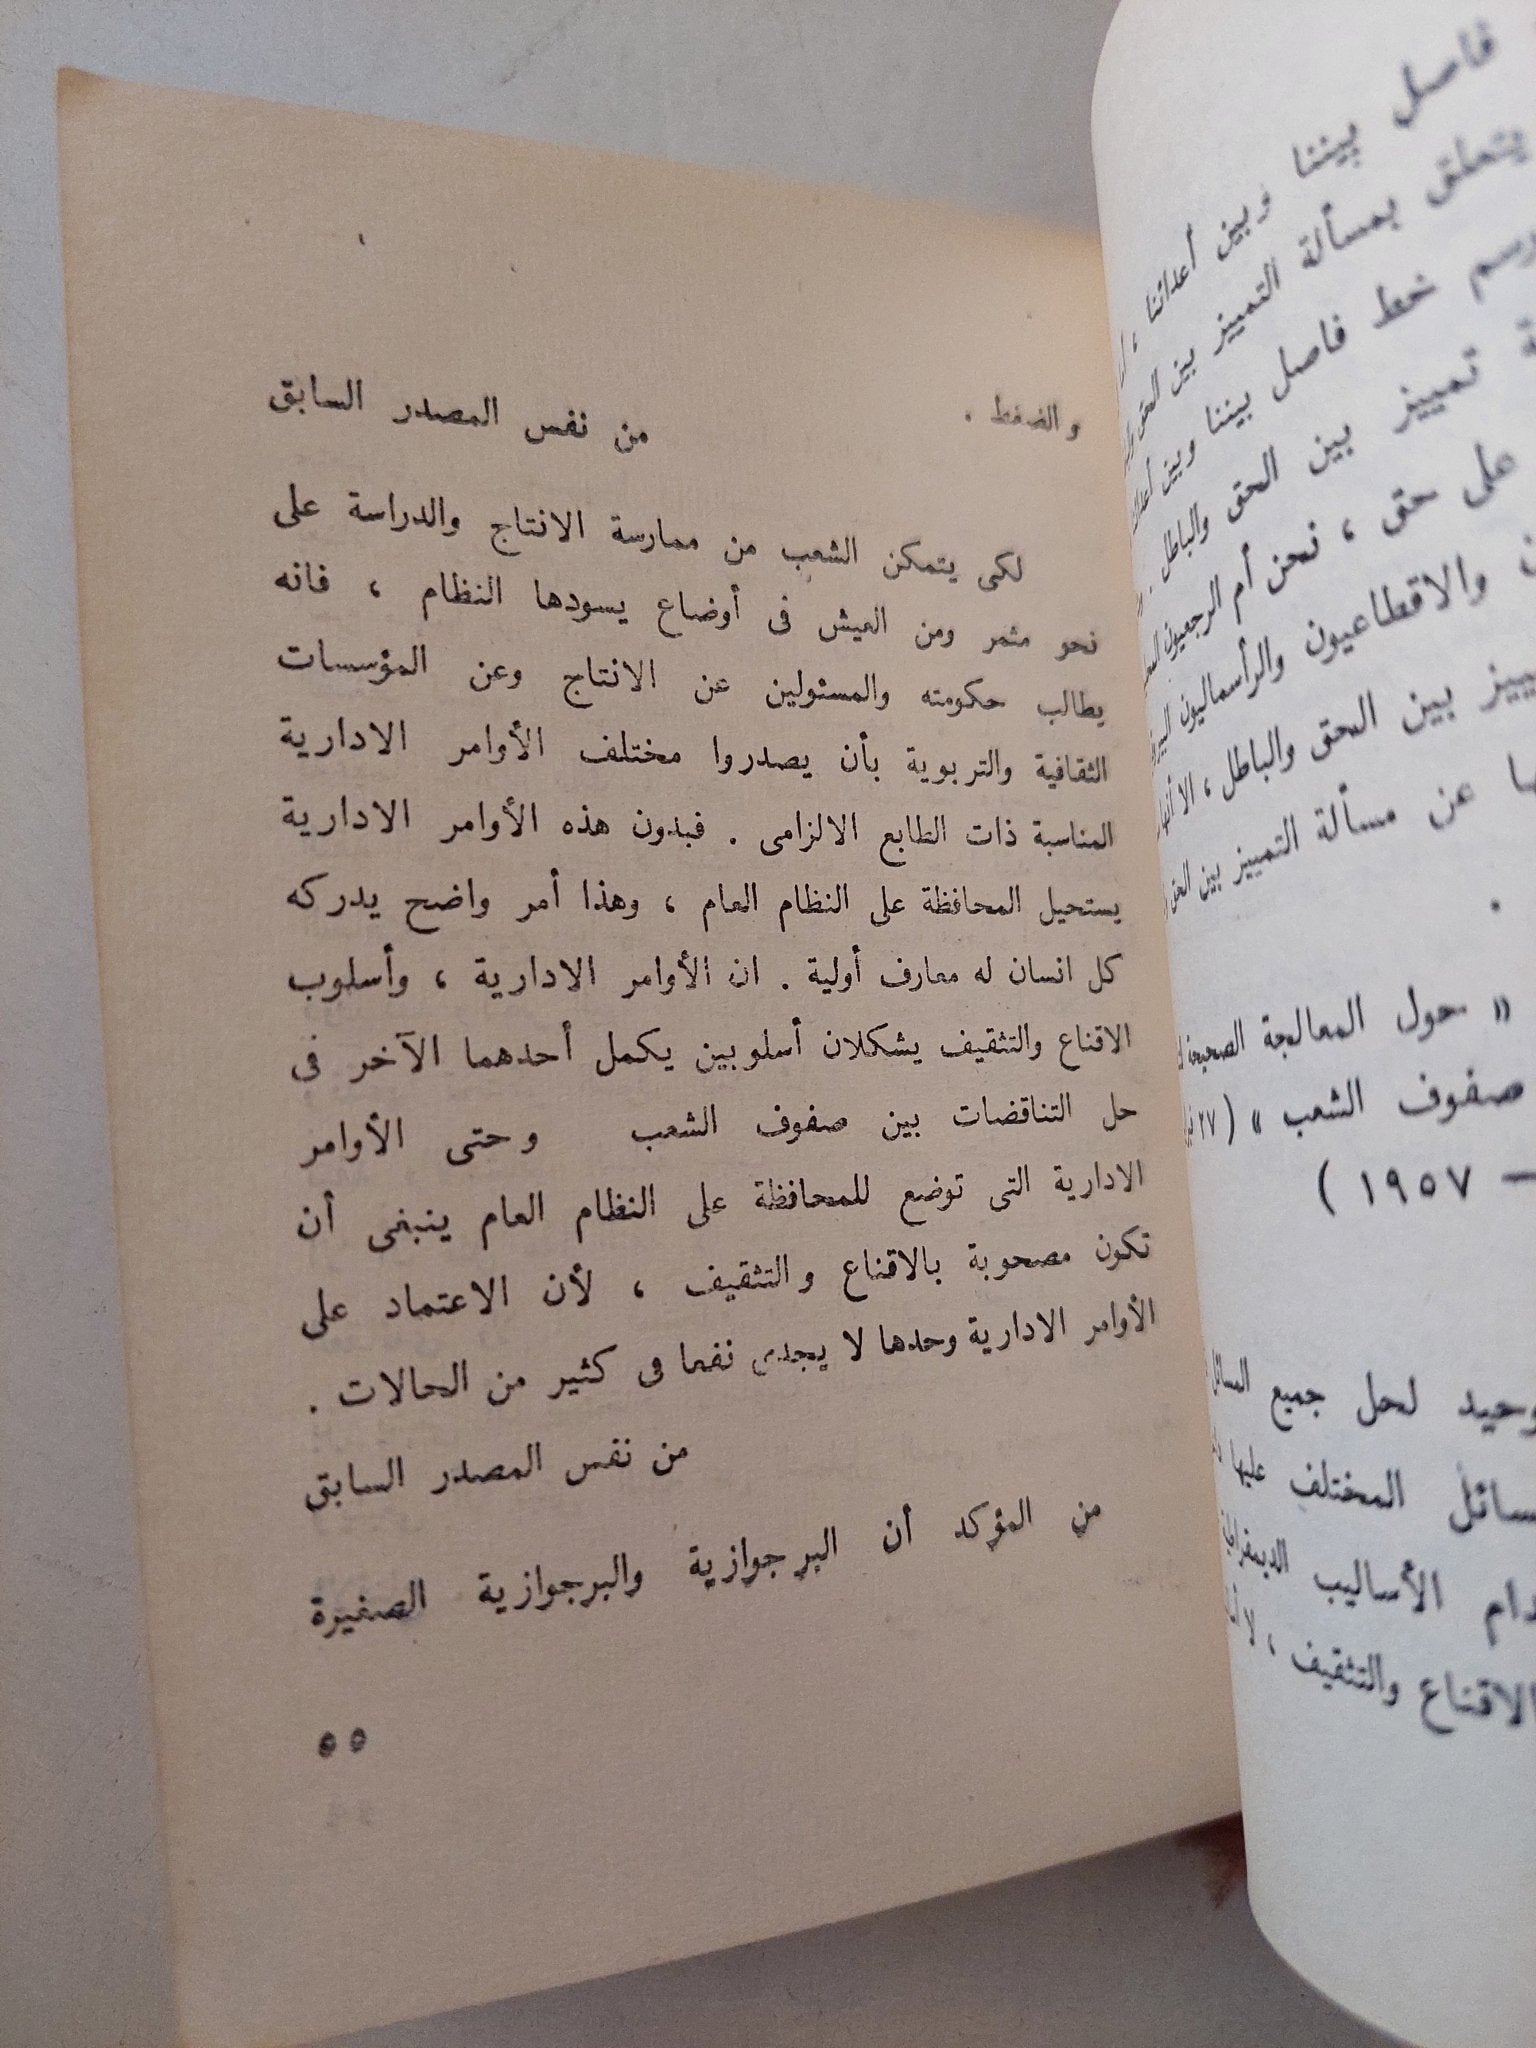 فاصل بيننا وبين أعدائنا ،
يتعلق بمسألة التمييز بين الحق
رسم خط فاصل بيننا وبين
تمييز بين الحق والباطل .
على حق ، نحن أم الرجعيون
والاقطاعيون والرأسماليون
بين الحق والباطل ، الا أنها
عن مسألة التمييز بين الحق
.
« حول المعالجة الصحيحة
صفوف الشعب » ( ٢٧
– ١٩٥٧ )
لحل جميع المسائل
المختلف عليها
الأساليب
الاقناع والتثقيف ، لا
والضغط .
من نفس المصدر السابق
لكى يتمكن الشعب من ممارسة الانتاج والدراسة على
نحو مثمر ومن العيش فى أوضاع يسودها النظام ، فانه
يطالب حكومته والمسئولين عن الانتاج وعن المؤسسات
الثقافية والتربوية بأن يصدروا مختلف الأوامر الادارية
المناسبة ذات الطابع الالزامى . فبدون هذه الأوامر الادارية
يستحيل المحافظة على النظام العام ، وهذا أمر واضح يدركه
كل انسان له معارف أولية . ان الأوامر الادارية ، وأسلوب
الاقناع والتثقيف يشكلان أسلوبين يكمل أحدهما الآخر فى
حل التناقضات بين صفوف الشعب وحتى الأوامر
الادارية التى توضع للمحافظة على النظام العام ينبغى أن
تكون مصحوبة بالاقناع والتثقيف ، لأن الاعتماد على
الأوامر الادارية وحدها لا يجدى نفعا فى كثير من الحالات .
من نفس المصدر السابق
من المؤكد أن البرجوازية والبرجوازية الصغيرة
٥٥